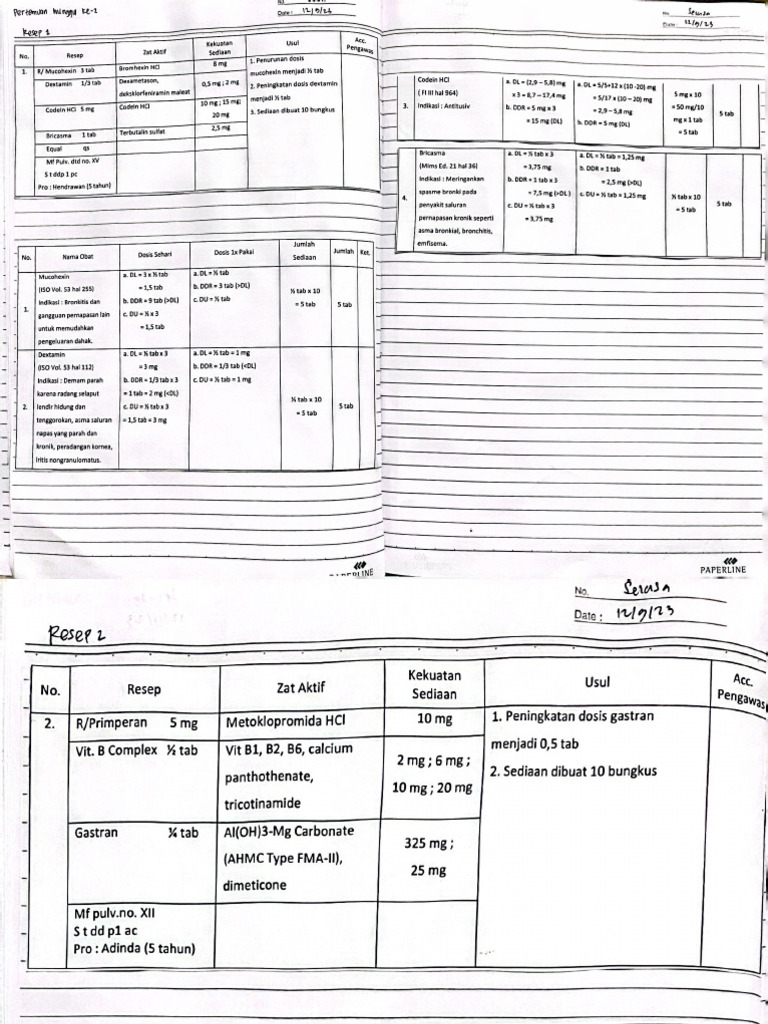 Pertemuan minggu ke-2
Date : 12/9/23
Resep 1
No.
Resep
Zat Aktif
Kekuatan
Sediaan
Usul
Acc.
Pengawas
1.
R/ Mucohexin 3 tab
Bromhexin HCl
8 mg
Dextamin 1/3 tab
Dexametason,
deksklorfeniramin maleat
0,5 mg ; 2 mg
Codein HCl 5 mg
Codein HCl
10 mg ; 15 mg;
20 mg
Bricasma 1 tab
Terbutalin sulfat
2,5 mg
Equal qs
Mf Pulv. dtd no. XV
S t ddp 1 pc
Pro : Hendrawan (5 tahun)
1. Penurunan dosis
mucohexin menjadi ½ tab
2. Peningkatan dosis dextamin
menjadi ½ tab
3. Sediaan dibuat 10 bungkus
No.
Nama Obat
Dosis Sehari
Dosis 1x Pakai
Jumlah
Sediaan
Jumlah
Ket.
1.
Mucohexin
(ISO Vol. 53 hal 255)
Indikasi : Bronkitis dan
gangguan pernapasan lain
untuk memudahkan
pengeluaran dahak.
a. DL = 3 x ½ tab
= 1,5 tab
b. DDR = 9 tab (>DL)
c. DU = ½ x 3
= 1,5 tab
a. DL = ½ tab
b. DDR = 3 tab (>DL)
c. DU = ½ tab
½ tab x 10
= 5 tab
5 tab
2.
Dextamin
(ISO Vol. 53 hal 112)
Indikasi : Demam parah
karena radang selaput
lendir hidung dan
tenggorokan, asma saluran
napas yang parah dan
kronik, peradangan kornea,
iritis nongranulomatus.
a. DL = ½ tab x 3
= 3 mg
b. DDR = 1/3 tab x 3
= 1 tab = 2 mg (<DL)
c. DU = ½ tab x 3
= 1,5 tab = 3 mg
a. DL = ½ tab = 1 mg
b. DDR = 1/3 tab (<DL)
c. DU = ½ tab = 1 mg
½ tab x 10
= 5 tab
5 tab
Serasa
Date : 12/9/23
3.
Codein HCl
( FI III hal 964)
Indikasi : Antitusiv
a. DL = (2,9 – 5,8) mg
x 3 = 8,7 – 17,4 mg
b. DDR = 5 mg x 3
= 15 mg (DL)
a. DL = 5/5+12 x (10 -20) mg
= 5/17 x (10 – 20) mg
= 2,9 – 5,8 mg
b. DDR = 5 mg (DL)
5 mg x 10
= 50 mg/10
mg x 1 tab
= 5 tab
5 tab
4.
Bricasma
(Mims Ed. 21 hal 36)
Indikasi : Meringankan
spasme bronki pada
penyakit saluran
pernapasan kronik seperti
asma bronkial, bronchitis,
emfisema.
a. DL = ½ tab x 3
= 3,75 mg
b. DDR = 1 tab x 3
= 7,5 mg (>DL)
c. DU = ½ tab x 3
= 3,75 mg
a. DL = ½ tab = 1,25 mg
b. DDR = 1 tab
= 2,5 mg (>DL)
c. DU = ½ tab = 1,25 mg
½ tab x 10
= 5 tab
5 tab
PAPERLINE
No. Serasa
Date : 12/9/23
Resep 2
No.
Resep
Zat Aktif
Kekuatan
Sediaan
Usul
Acc.
Pengawas
2.
R/Primperan 5 mg
Metoklopromida HCl
10 mg
Vit. B Complex ½ tab
Vit B1, B2, B6, calcium
panthothenate,
tricotinamide
2 mg ; 6 mg ;
10 mg ; 20 mg
Gastran ¼ tab
Al(OH)3-Mg Carbonate
(AHMC Type FMA-II),
dimeticone
325 mg ;
25 mg
Mf pulv.no. XII
S t dd p1 ac
Pro : Adinda (5 tahun)
1. Peningkatan dosis gastran
menjadi 0,5 tab
2. Sediaan dibuat 10 bungkus